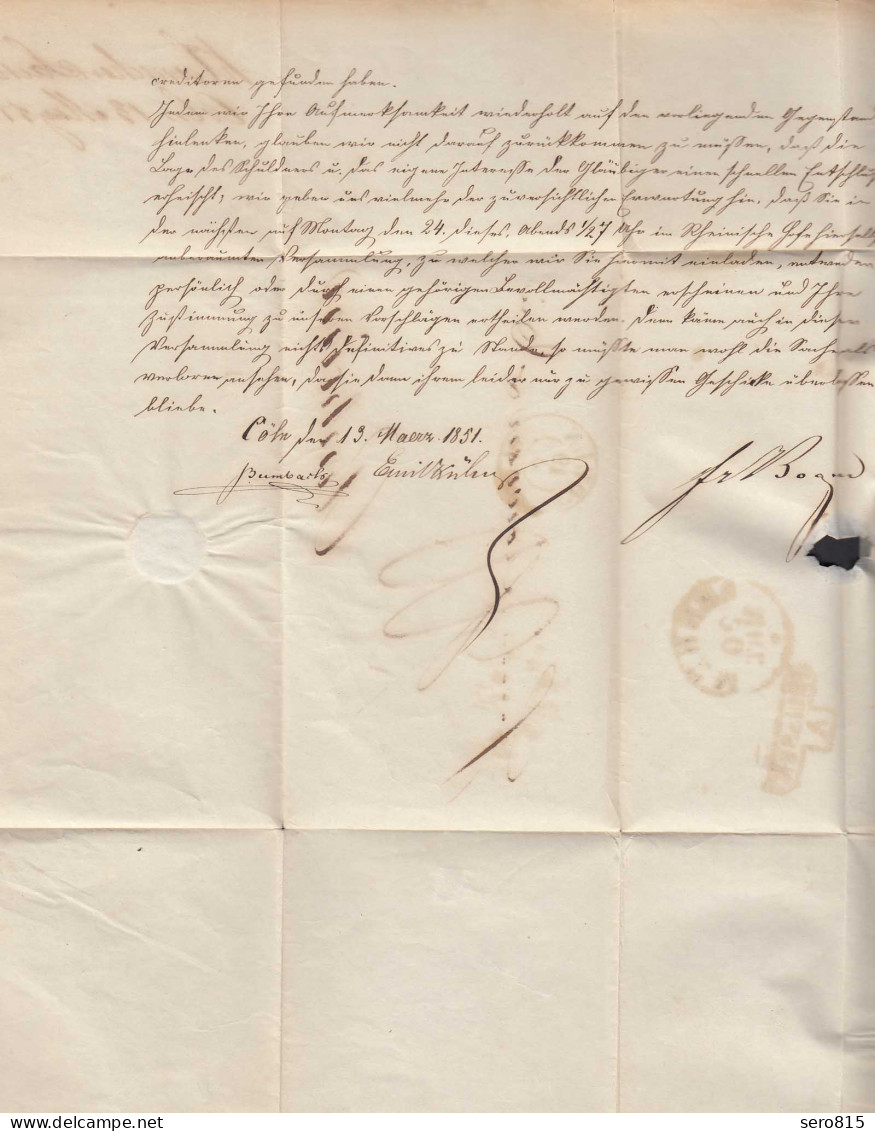 creditoren gefunden haben.
Indem wir Ihre Aufmerksamkeit wiederholt auf den vorliegenden Gegenstand
hinlenken, glauben wir nicht darauf zurückkommen zu müssen, daß die
Lage des Schuldners u. das eigene Interesse der Gläubiger einen schnellen Entschluß
erheischt; wir geben uns vielmehr der zuversichtlichen Erwartung hin, daß Sie in
der nächsten auf Montag den 24. dieses. Abends 1/2 7 Uhr im Rheinischen Hofe hierselbst
anberaumten Versammlung, zu welcher wir Sie hiermit einladen, entweder
persönlich oder durch einen gehörigen Bevollmächtigten erscheinen und Ihre
Zustimmung zu unseren Vorschlägen ertheilen werden. Denn käme auch in dieser
Versammlung nichts Definitives zu Stande, so müßte man wohl die Sache als
verloren ansehen, da sie dann ihrem leider nur zu gewissen Geschicke überlassen
bliebe.
Cöln den 19. Maerz 1851.
delcampe.net
sero815